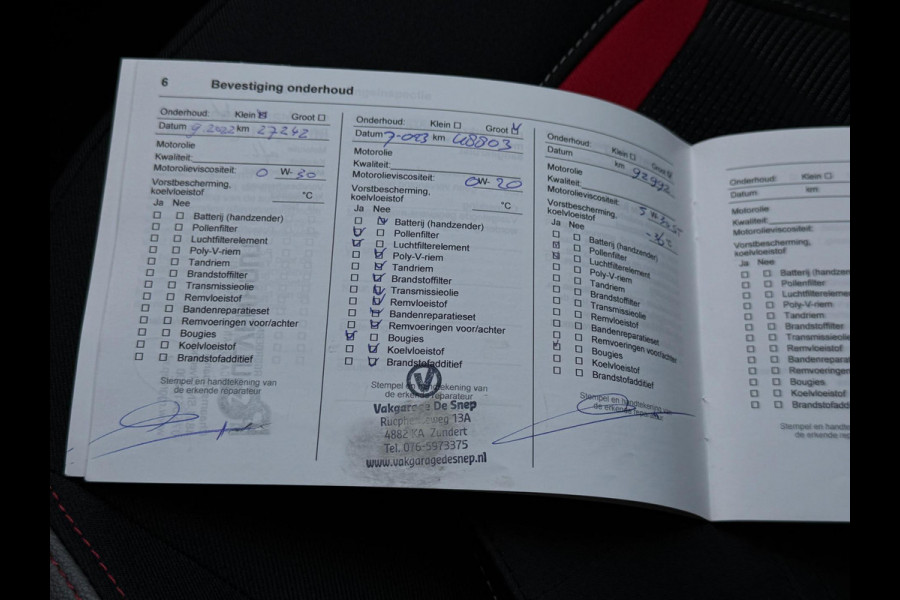 6 Bevestiging onderhoud
Onderhoud: Klein Groot
Datum 9.2022 km 27242
Motorolie
Kwaliteit:
Motorolieviscositeit: 0 W- 30
Vorstbescherming,
koelvloeistof °C
Ja Nee
Batterij (handzender)
Pollenfilter
Luchtfilterelement
Poly-V-riem
Tandriem
Brandstoffilter
Transmissieolie
Remvloeistof
Bandenreparatieset
Remvoeringen voor/achter
Bougies
Koelvloeistof
Brandstofadditief
Stempel en handtekening van
de erkende reparateur
Onderhoud: Klein Groot
Datum km 48803
Motorolie
Kwaliteit:
Motorolieviscositeit: 0 W- 20
Vorstbescherming,
koelvloeistof °C
Ja Nee
Batterij (handzender)
Pollenfilter
Luchtfilterelement
Poly-V-riem
Tandriem
Brandstoffilter
Transmissieolie
Remvloeistof
Bandenreparatieset
Remvoeringen voor/achter
Bougies
Koelvloeistof
Brandstofadditief
Stempel en handtekening van
de erkende reparateur
Vakgarage De Snep
13A
4882 KA Zundert
Tel. 076-5973375
www.vakgaragedesnep.nl
Onderhoud: Klein Groot
Datum km 92992
Motorolie
Kwaliteit:
Motorolieviscositeit: 5 W-30
Vorstbescherming,
koelvloeistof
Ja Nee
Batterij (handzender)
Pollenfilter
Luchtfilterelement
Poly-V-riem
Tandriem
Brandstoffilter
Transmissieolie
Remvloeistof
Bandenreparatieset
Remvoeringen voor/achter
Bougies
Koelvloeistof
Brandstofadditief
Stempel en handtekening van
de erkende reparateur
Onderhoud: Klein
Datum: km:
Motorolie
Kwaliteit:
Motorolieviscositeit:
Vorstbescherming,
koelvloeistof
Ja Nee
Batterij (handzen
Pollenfilter
Luchtfiltereleme
Poly-V-riem
Tandriem
Brandstoffilter
Transmissieolie
Remvloeistof
Bandenrepara
Remvoeringen
Bougies
Koelvloeistof
Brandstofadd
Stempel en handte
de erkende rep